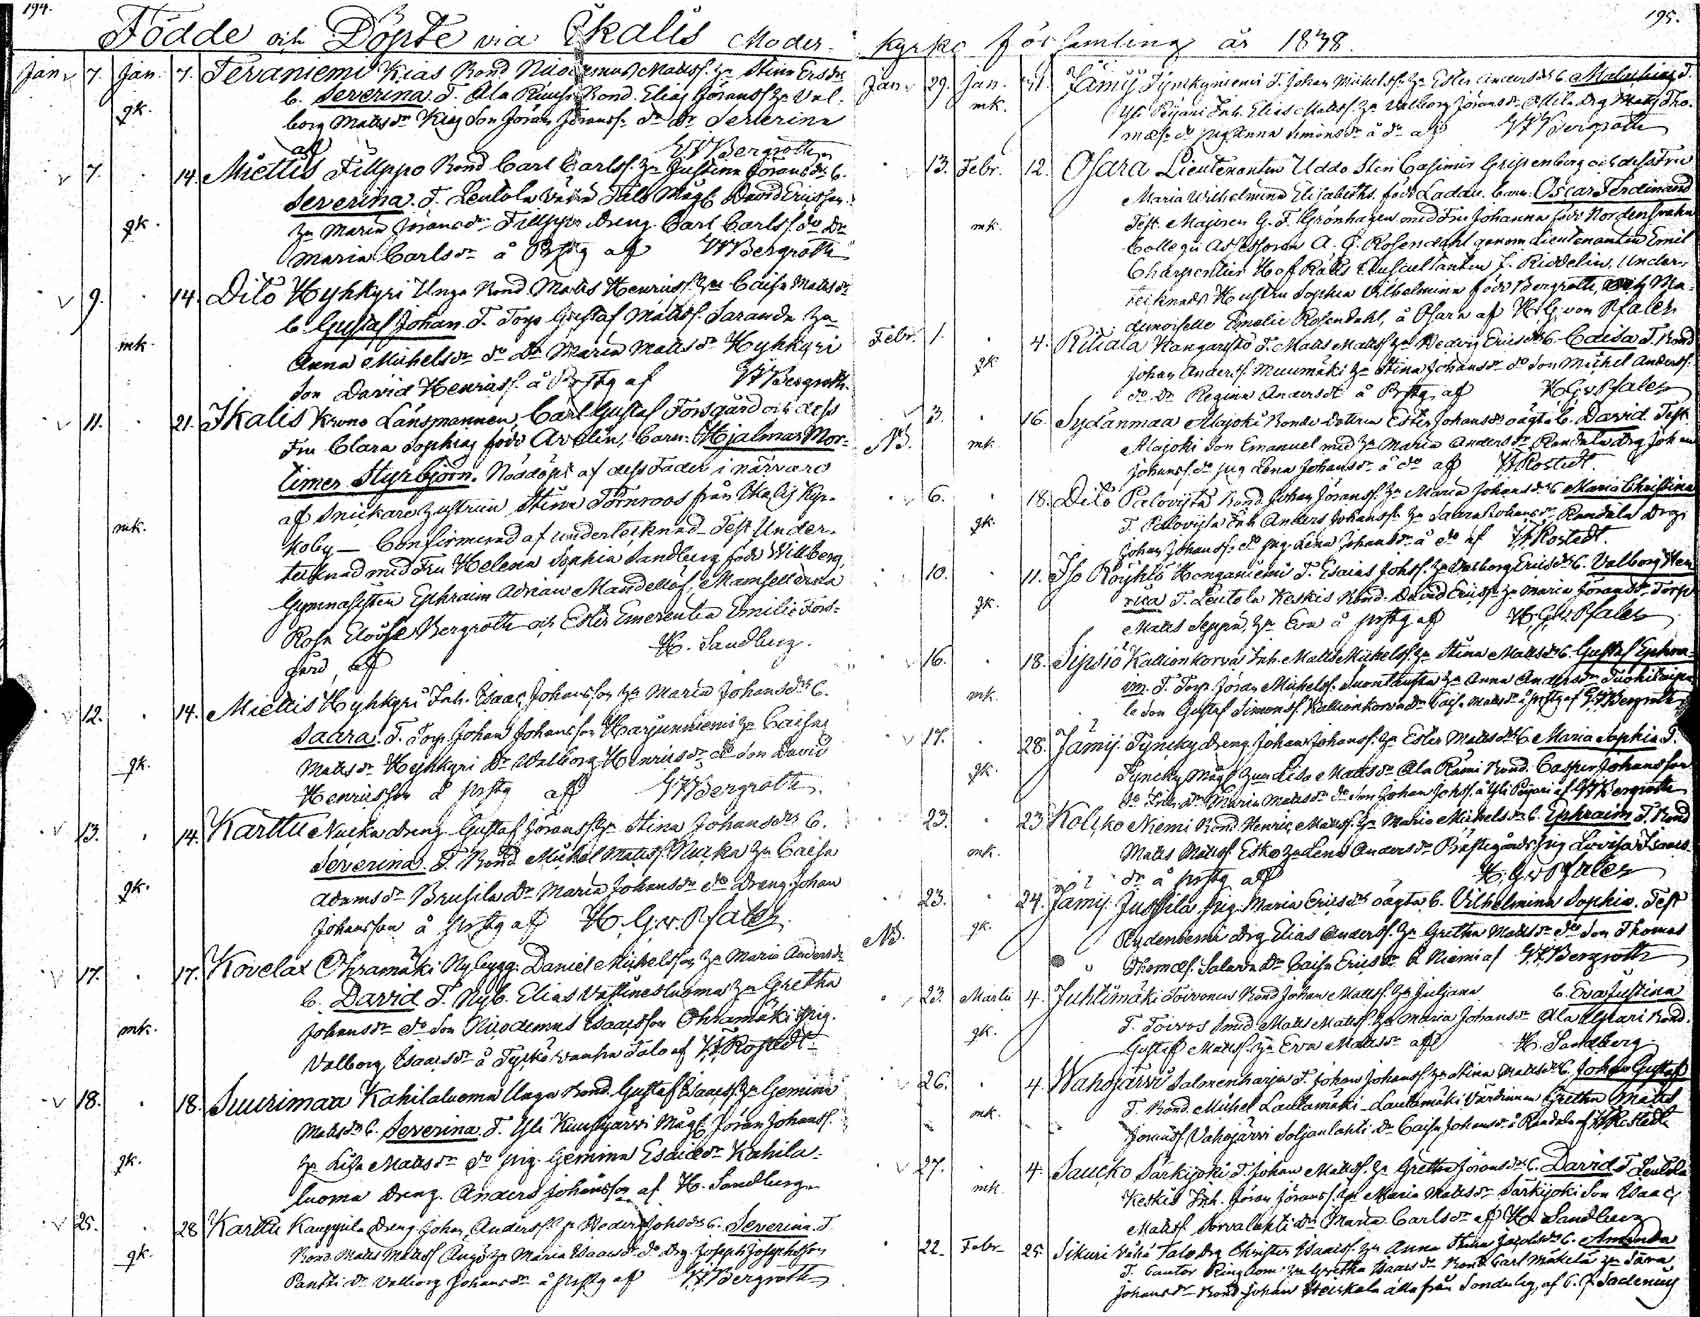 194.
Födde och Döpte vid Ikalis Moder-
Jan. 7. Jan. 7. Tevaniemi Kias Bond Nicodemus Matts. Hu Stina Ersdr
gk. b. Severina. T. Ala Bond. Elias Göranss. Hu Val-
borg Mattsdr Kias Son Jöran Jöranss. do dr Severina
af W Bergroth
7. 14. Miettis Filippo Bond Carl Carlss. Hu Justina Jöransdr b.
Severina. T. Leutola Talo Måg David Ericsson
gk. Hu Maria Jöransdr Filippo dreng Carl Carlss. do dr
Maria Carlsdr å Prstg af W Bergroth
9. 14. Dito Hyhkyri Unga Bond Matts Henriss. Hu Caisa Mattsdr
b. Gustaf Johan. T. Torp Gustaf Matts. Saranda Hu
mk. Anna Michelsdr do dr Maria Mattsdr Hyhkyri
Son David Henriss. å Prstg af W Bergroth
11. 21. Ikalis Krono Länsmannen, Carl Gustaf Forsgård och dess
Fru Clara Sophia född Avelin, barn: Hjalmar Mor-
timer Styrbjörn. Nöddöpt af dess Fader i närvaro
af Snickare hustrun Stina Törnroos från Ikalis Kyr-
mk. koby — Confirmerad af undertecknad. Test. Under-
tecknad med Fru Helena Sophia Sandberg född Widberg,
Gymnasisten Ephraim Adrian Mandellöf, Mamsellerna
Rosa Elouise Bergroth och Ester Emerentia Emilie Fors-
gård, af H. Sandberg.
12. 14. Miettis Hyhkyri Inh. Isaac Johansson Hu Maria Johansdr b.
Saara. T. Torp. Johan Johansson Harjunniemi Hu Caisa
gk. Mattsdr Hyhkyri dr Walborg Henriksdr do Son David
Henriksson å Prstg af W Bergroth.
13. 14. Karttu Nucka dreng Gustaf Jöranss. Hu Stina Johansdr b.
Severina. T. Bond Michel Matts. Nucka Hu Caisa
gk. Adamsdr Brusila dr Maria Johansdr do dreng Johan
Johansson å Prstg af H. G. v. Pfaler
17. 17. Kovelax Ohramäki Nybygg. Daniel Michelsson Hu Maria Andersdr
b. David T. Nyb. Elias Hu Gretha
mk. Johansdr do Son Nicodemus Isacsson Ohramäki Pig.
Valborg Isaacsdr å Talo af W Rostedt
18. 18. Suurimaa Kahilaluoma Unga Bond Gustaf Isaacs. Hu Gemina
Mattsdr b. Severina. T. Yli Kuusijärvi Måg. Jöran Johanss.
gk. Hu Lisa Mattsdr do pig. Gemina Esaiædr Kahila-
luoma dreng. Anders Johansson af H. Sandberg.
25. 28 Karttu Kauppila dreng Johan Anderss. Hu Hedvig Johsdr b. Severina. T.
gk. Bond Matts Matts. Hu Maria Isaacsdr do drg. Joseph Josephsson
Panthi dr Valborg Johansdr å Prstg af W Bergroth
195.
kyrko församling år 1838.
Jan. 29. Jan. 31. Jämijä T. Johan Michelss. Hu Ester Andersdr b. T.
mk. Yli Inh. Elias Matts. Hu Valborg Jöransdr drg Matts Tho-
mæs. do pig Anna Simonsdr å do af W Bergroth
13. Febr. 12. Osara Lieutenanten Uddo Sten Casimir Gripenberg och dess Fru
Maria Wilhelmina Elisabeths. född Laddu. barn: Oscar Ferdinand
mk. Test. Majoren G. F. Grönhagen med Fru Johanna född Nordensvahn
Collegii Assessoren A. G. Rosendahl genom Lieutenanten Emil
Charpentier Hof Rätts Auscultanten F. Riddelin, Under-
tecknades Hustru Sophia Vilhelmina född Bergroth, och Ma-
demoiselle Emelie Rosendahl, å Osara af H. G. von Pfaler
Febr. 1. 4. Riitiala Kangaristo T. Matts Matts. Hu Hedvig Ericsdr b. Caisa T. Bond
gk. Johan Anderss. Muumäki Hu Stina Johansdr do Son Michel Anderss.
do dr Regina Andersdr å Prstg af H. G. v. Pfaler
3. 16. Sydänmaa Alajoki Bonde dottren Ester Johansdr oägta b. David Test.
NB. mk. Alajoki Son Emanuel med Hu Maria Andersdr Randala drg Johan
Johanss. do pig Lena Johansdr å do af W Rostedt.
6. 18. Dito Palovista Bond Johan Jöranss. Hu Maria Johansdr b. Maria Christina
gk. T. Palovista Inh Anders Johanss. Hu Saara Johansdr Randala drg
Johan Johanss. do pig. Lena Johansdr å do af W Rostedt.
10. 11. Iso Röyhiö Honganiemi T. Esaias Johss. Hu Valborg Ericsdr b. Valborg Hen-
gk. rica T. Leutola Keskis Bond. David Ericss. Hu Maria Jöransdr Torp
Matts Seppä, Hu Eva å Prstg af H. G. v. Pfaler
16. 18. Sipsiö Kallionkorva Inh. Matts Michelss. Hu Stina Mattsdr b. Gustaf Ephra-
mk. im. T. Torp. Jöran Michelss. Hu Anna Andersdr
Son Gustaf Simonss. Kallionkorva dr Caisa Mattsdr å Prstg af W Bergroth
17. 28. Jämijä Tyncky dreng. Johan Johanss. Hu Ester Mattsdr b. Maria Sophia T.
gk. Tyncky Måg Hu Lisa Mattsdr Ala Rämi Bond. Casper Johansson
dr Maria Mattsdr do Son Johan Johss. å Yli af W Bergroth
23. 23 Kolcko Niemi Bond Henric Matts. Hu Maria Michelsdr b. Ephraim T. Bond
mk. Matts Matts. Esko Hu Lena Andersdr Prästegårds Pig Lovisa Isaacs-
dr å Prstg af H. G. v. Pfaler
23. 24. Jämijä Jussila Pig. Maria Ericsdr oägta b. Vilhelmina Sophia. Test.
NB. gk. drg Elias Anderss. Hu Gretha Mattsdr do Son Thomas
Thomæs. Salava dr Caisa Ericsdr å Niemi af W Bergroth
23. Martii 4. Juhtimäki Toivonen Bond Johan Matts. Hu Juliana b. Eva Justina
gk. T. Toivos Smed Matts Matts. Hu Maria Johansdr Ala Bond.
Gustaf Matts. Hu Eva Mattsdr af H. Sandberg
26. 4. Wahojärvi Salonenharju T. Johan Johanss. Hu Stina Mattsdr b. Johan Gustaf
mk. T. Bond. Michel Lautamäki Lautamäki Värdinnan Gretha Matts
Jöranss. Vahojärvi dr Caisa Johansdr å Randala af W Rostedt
27. 4. Saucko Särkijoki T. Johan Matts. Hu Gretha Jöransdr b. David T. Leutola
mk. Keskis Inh. Jöran Jöranss. Hu Maria Mattsdr Särkijoki Son Isaac
Matts. dr Maria Carlsdr af H. Sandberg
22. Febr. 25. Sikuri Vaha Talo drg Christer Isaacs. Hu Anna Stina b. Amanda
T. Cantor Ringbom Hu Gretha Isaacsdr Bond Carl Mäkelä Hu Saara
Johansdr Bond Johan Heiskala alla från af C. J. Sadenius